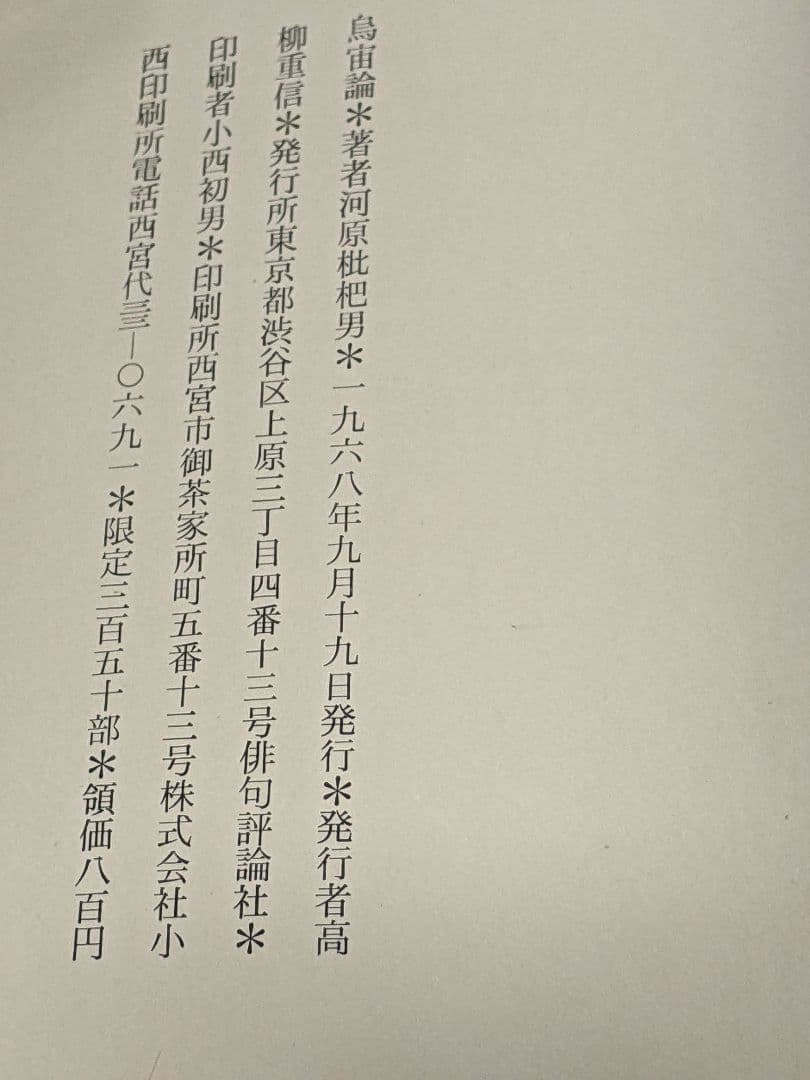 烏宙論＊著者河原枇杷男＊一九六八年九月十九日発行＊発行者高
柳重信＊発行所東京都渋谷区上原三丁目四番十三号俳句評論社＊
印刷者小西初男＊印刷所西宮市御茶家所町五番十三号株式会社小
西印刷所電話西宮代三三―〇六九一＊限定三百五十部＊領価八百円